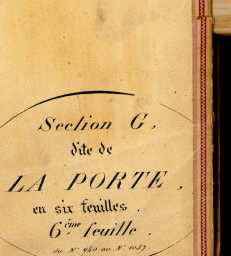 Section G,
dite de
LA PORTE,
en six feuilles.
6ème feuille.
du N° 940 au N° 1057